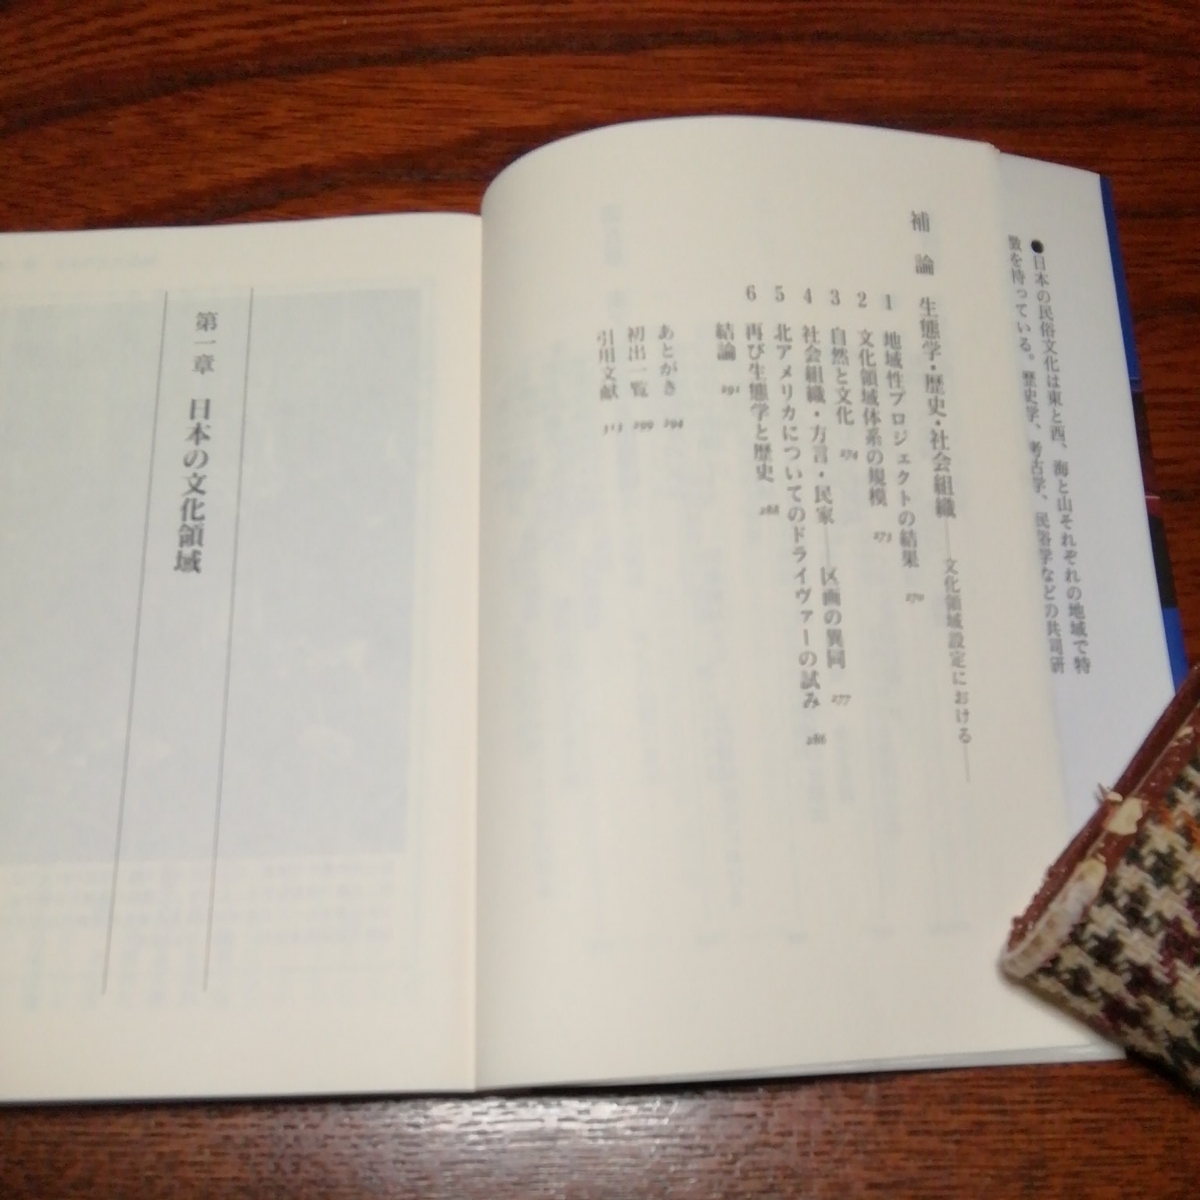 ●日本の民俗文化は東と西、海と山それぞれの地域で特
徴を持っている。歴史学、考古学、民俗学などの共同研
補論 生態学・歴史・社会組織――文化領域設定における――
1 地域性プロジェクトの結果 270
2 文化領域体系の規模 273
3 自然と文化 274
4 社会組織・方言・民家――区画の異同 277
5 北アメリカについてのドライヴァーの試み 286
6 再び生態学と歴史 288
結論 291
あとがき 294
初出一覧 299
引用文献 313
第一章 日本の文化領域